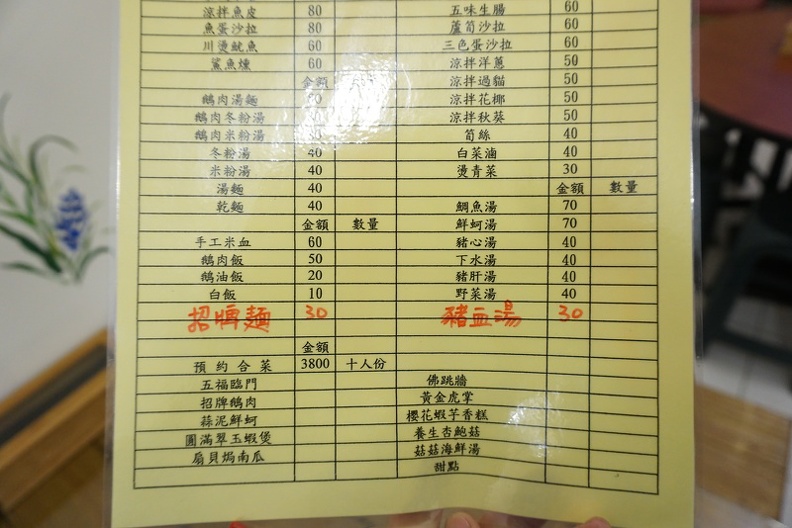 涼拌魚皮 80 五味生腸 60
魚蛋沙拉 80 蘆筍沙拉 60
川燙魷魚 60 三色蛋沙拉 60
鯊魚燻 60 涼拌洋蔥 50
金額 涼拌過貓 50
鵝肉湯麵 涼拌花椰 50
鵝肉冬粉湯 涼拌秋葵 50
鵝肉米粉湯 筍絲 40
冬粉湯 40 白菜滷 40
米粉湯 40 燙青菜 30
湯麵 40 金額 數量
乾麵 40 鯛魚湯 70
金額 數量 鮮蚵湯 70
手工米血 60 豬心湯 40
鵝肉飯 50 下水湯 40
鵝油飯 20 豬肝湯 40
白飯 10 野菜湯 40
招牌麵 30 豬血湯 30
金額
預約合菜 3800 十人份
五福臨門 佛跳牆
招牌鵝肉 黃金虎掌
蒜泥鮮蚵 櫻花蝦芋香糕
圓滿翠玉蝦煲 養生杏鮑菇
扇貝焗南瓜 菇菇海鮮湯
甜點